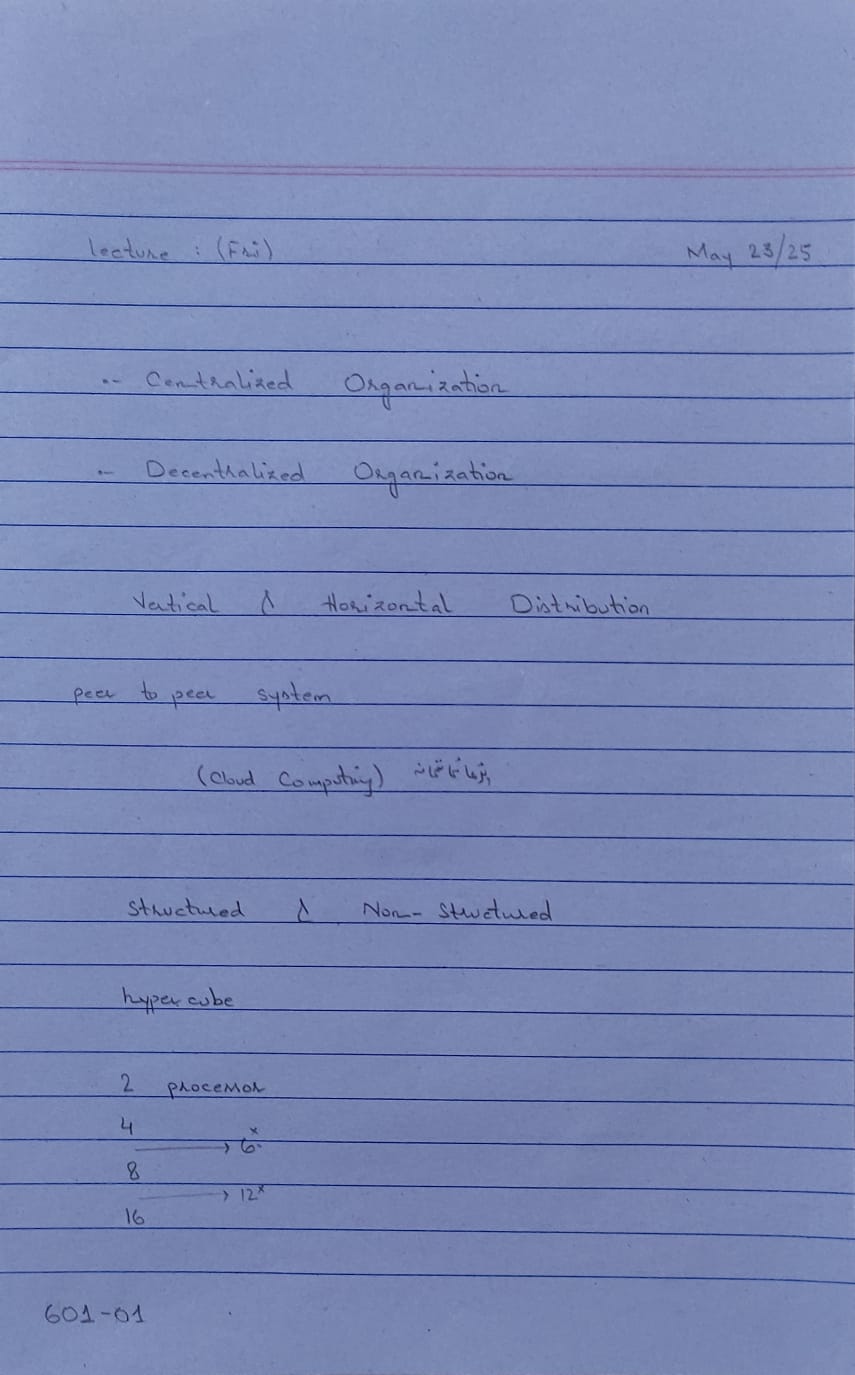 lecture : (Fri) May 23/25
•- Centralized Organization
•- Decentralized Organization
Vertical & Horizontal Distribution
peer to peer system
(Cloud Computing)
Structured & Non-Structured
hypercube
2 processor
4
→ 6 x
8
→ 12 x
16
601-01